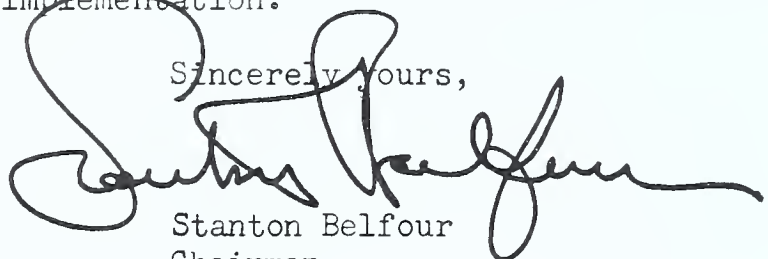 implementation.
Sincerely yours,
Stanton Belfour
Stanton Belfour
Chairman